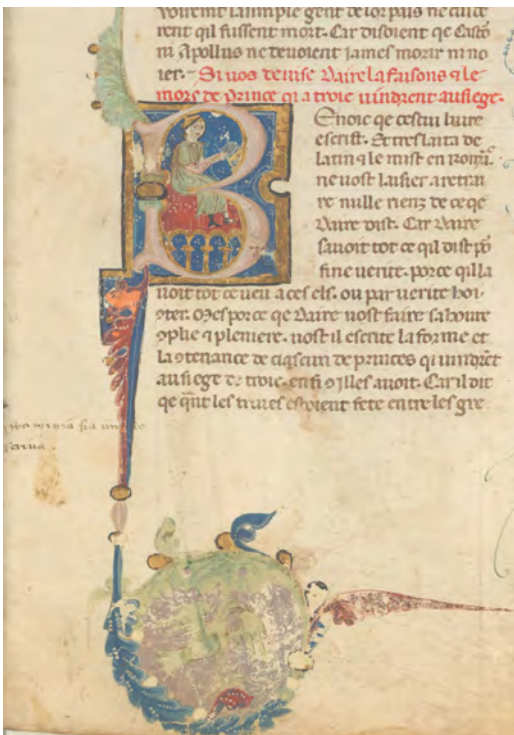 voirent la simple gent de lor païs ne cuide
rent qil fussent mort. Car disoient qe Casto
ni Apollus ne devoient james morir ni no
ier. Si vos devise Daire la faisons ⁊ le
mors de Prince qi a troie vindrent au siege.
Benoie qe cestui livre
escrist. Et treslaita de
latin ⁊ le mist en
ne vost laisier a retrai
re nulle rienz de ce qe
Daire dist. Car Daire
savoit tot ce qil dist
fine verite. porce qil la
voit tot ce veu a ces els. ou par verite
ꝯter. Mes porce qe Daire vost faire sa hovre
ꝯplie ⁊ pleniere. vost il escrire la forme et
la ꝯtenance de ciascun de princes qi vindrēt
au siege de troie. avoit. Car il dit
qe qnt les trives estoient fete entre les gre